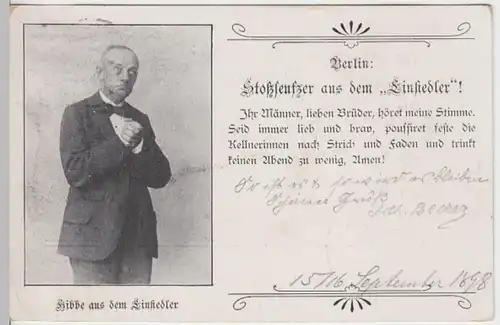 Berlin:
Stoßseufzer aus dem „Einsiedler“!
Ihr Männer, lieben Brüder, höret meine Stimme.
Seid immer lieb und brav, poussiret feste die
Kellnerinnen nach Strich und Faden und trinkt
keinen Abend zu wenig, Amen!
So ist es & so wird es bleiben
Schönen Gruß
15/16 September 1898
Hibbe aus dem Einsiedler